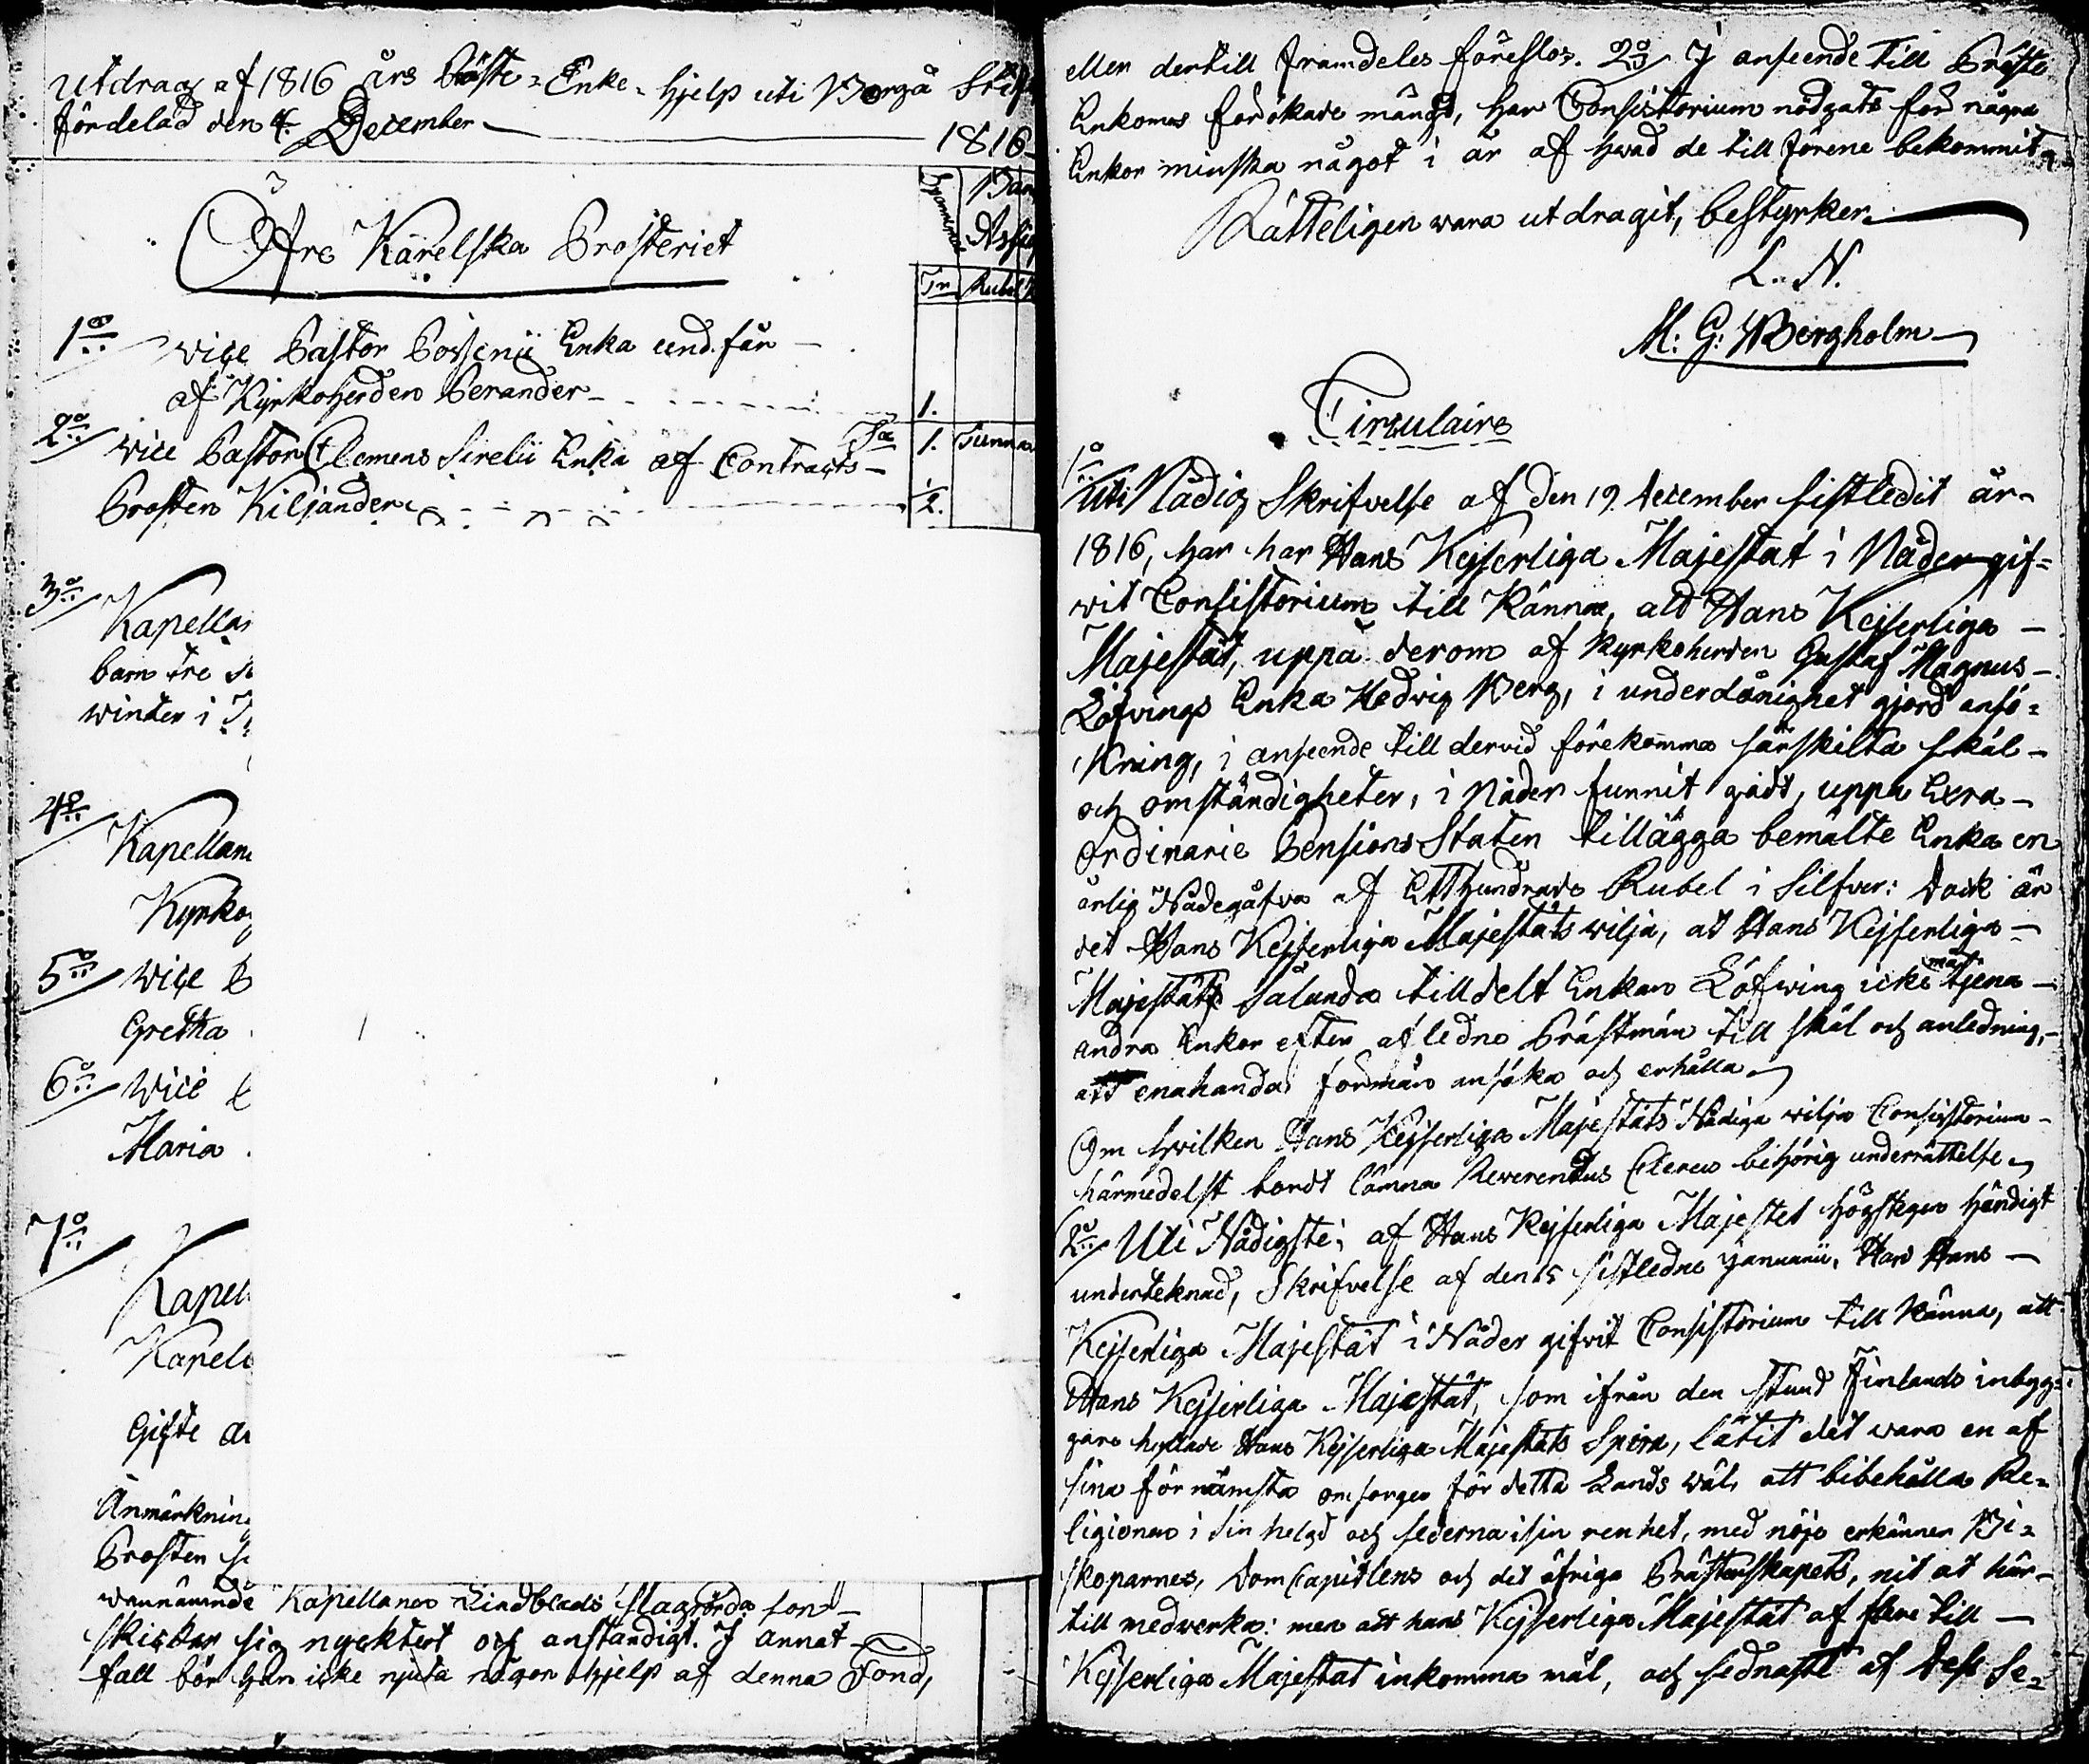 Utdrag af 1816 års Präste-Enke-hjelp uti Borgå Stif
fördelad den 4. December 1816
Spannmål Ban
Assig
Öfre Karelska Prosteriet
Tr Rubel
1o vice Pastor Poppii Enka und. får
af Kyrkoherden Perander 1.
Sa 1. Tunna
2o vice Pastor Clemens Sirelii Enka af Contracts-
Prosten Kiljander ½.
3o Kapellan
barn tre
winter i
4o Kapellan
Kyrko
5o vice P
Gretha
6o vice
Maria
7o Kapell
Kapell
Gifte
Anmärkning
Prosten
wannämnde Kapellanen Lindblads slagrörda son
skickar sig nycktert och anständigt. I annat
fall bör han icke njuta någon hjelp af denna Fond,
eller dertill framdeles föreslos. 2o I anseende till Präste
Enkornas förökade mängd, har Consistorium nödgats för några
Enkor minska något i år af hwad de till förene bekommit
Rätteligen wara utdragit, bestyrker
L. N.
M: G: Bergholm
Circulaire
1o Uti Nådig Skrifvelse af den 19 December sistledit år
1816, har har Hans Kejserliga Majestät i Nåder gif=
vit Consistorium till Känna, att Hans Kejserliga
Majestät, uppå derom af Kyrkoherden Gustaf Magnus
Löfvings Enka Hedvig Berg, i underdånighet gjord ansö=
kning, i anseende till dervid förekomna särskilta skäl
och omständigheter, i Nåder funnit godt, uppå Exra
Ordinarie Pensions Staten tillägga bemälte Enka en
årlig Nådegåfva af Etthundrade Rubel i Silfver: dock är
det Hans Kejserliga Majestäts wilja, at Hans Kejserliga
Majestäts sålunda tilldelt Enkan Löfwing icke må tjena
andra Enkor efter afledne Prästmän till skäl och anledning,
att enahanda förmån ansöka och erhålla
Om hvilken Hans Kejserliga Majestäts Nådiga wilja Consistorium
härmedelst bordt lämna Reverendus Clerus behörig underrättelse
2o Uti Nådigste, af Hans Kejserliga Majestet högstegen händigt
underteknad, Skrifvelse af den 15 sistledne Januarii, Har Hans
Kejserliga Majestät i Nåder gifvit Consistorium till Känna, att
Hans Kejserliga Majestät, som ifrån den stund Finlands inbyg=
gare hyllade Hans Kejserliga Majestäts Spira, låtit det wara en af
sina förnämsta omsorger för detta Lands wäl, att bibehålla Re=
ligionen i sin helgd och sederna i sin renhet, med nöje erkänner Bi=
skoparnes, DomCapitlens och det öfriga Prästerskapets, nit at här-
till medverka: men att hans Kejserliga Majestät af flere till
Kejserliga Majestät inkomma mål, och sednast af dess Se=